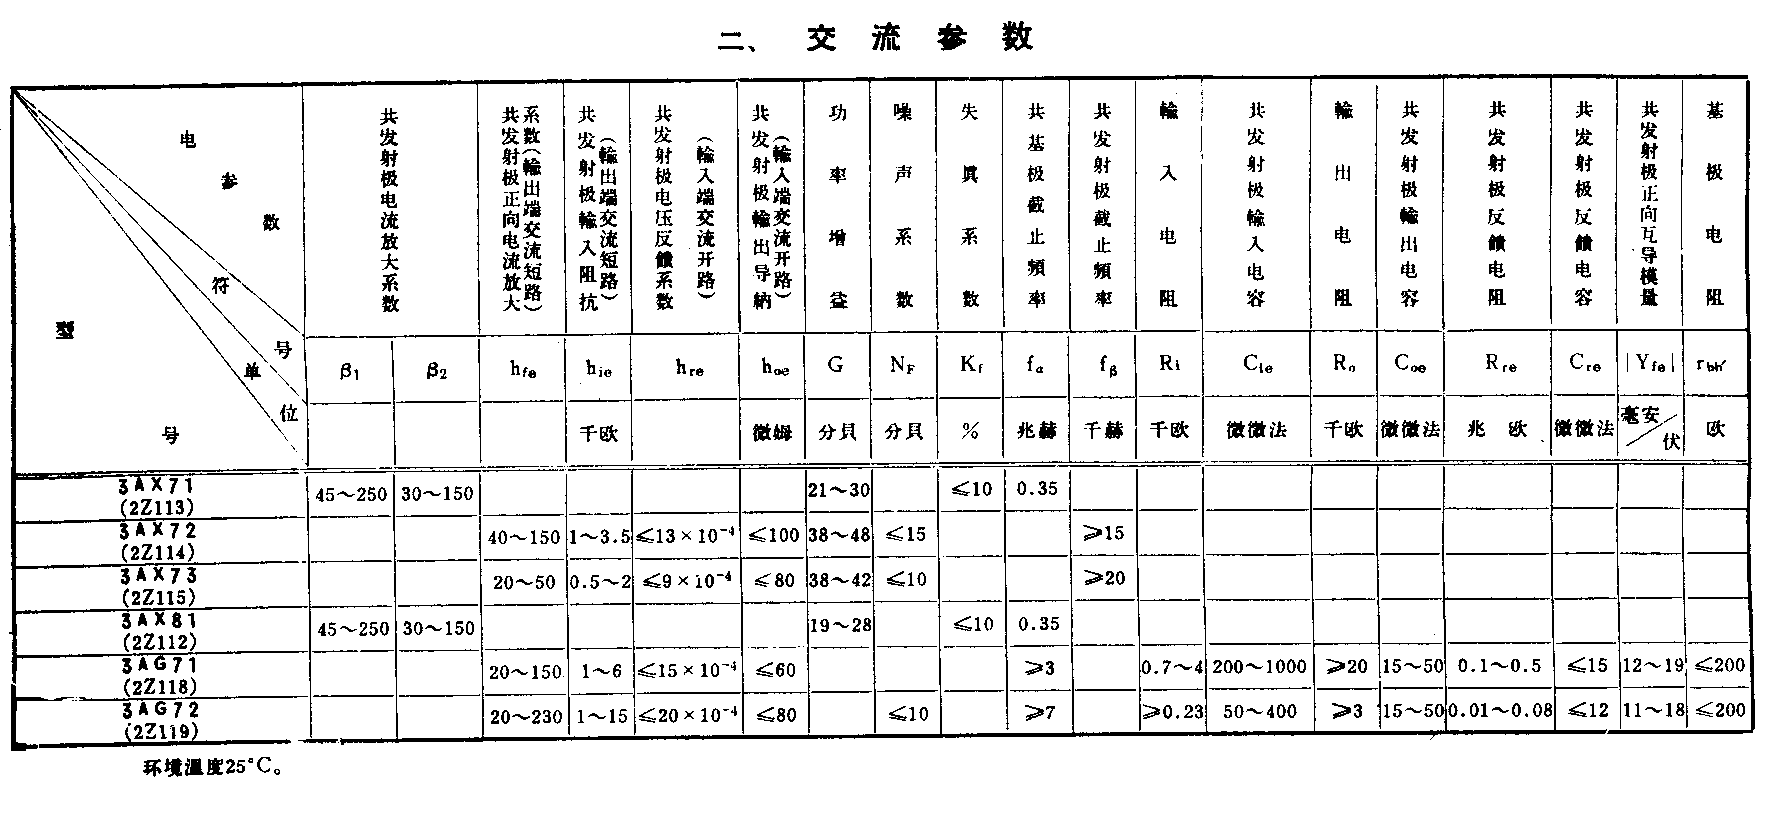 二、交流参数
电参数
符号
单位
型号
共发射极电流放大系数
共发射极正向电流放大
系数(輸出端交流短路)
共发射极輸入阻抗
(輸出端交流短路)
共发射极电压反饋系数
(輸入端交流开路)
共发射极輸出导納
(輸入端交流开路)
功率增益
噪声系数
失眞系数
共基极截止頻率
共发射极截止頻率
輸入电阻
共发射极輸入电容
輸出电阻
共发射极輸出电容
共发射极反饋电阻
共发射极反饋电容
共发射极正向互导模量
基极电阻
β₁ β₂ hfe hie hre hoe G NF Kf fα fβ Ri Cie Ro Coe Rre Cre |Yfe| rbb′
千欧 微姆 分貝 分貝 % 兆赫 千赫 千欧 微微法 千欧 微微法 兆欧 微微法 毫安/伏 欧
3AX71
(2Z113)
45～250 30～150 21～30 ≤10 0.35
3AX72
(2Z114)
40～150 1～3.5 ≤13×10⁻⁴ ≤100 38～48 ≤15 ≥15
3AX73
(2Z115)
20～50 0.5～2 ≤9×10⁻⁴ ≤80 38～42 ≤10 ≥20
3AX81
(2Z112)
45～250 30～150 19～28 ≤10 0.35
3AG71
(2Z118)
20～150 1～6 ≤15×10⁻⁴ ≤60 ≥3 0.7～4 200～1000 ≥20 15～50 0.1～0.5 ≤15 12～19 ≤200
3AG72
(2Z119)
20～230 1～15 ≤20×10⁻⁴ ≤80 ≤10 ≥7 ≥0.23 50～400 ≥3 15～50 0.01～0.08 ≤12 11～18 ≤200
环境溫度25°C。